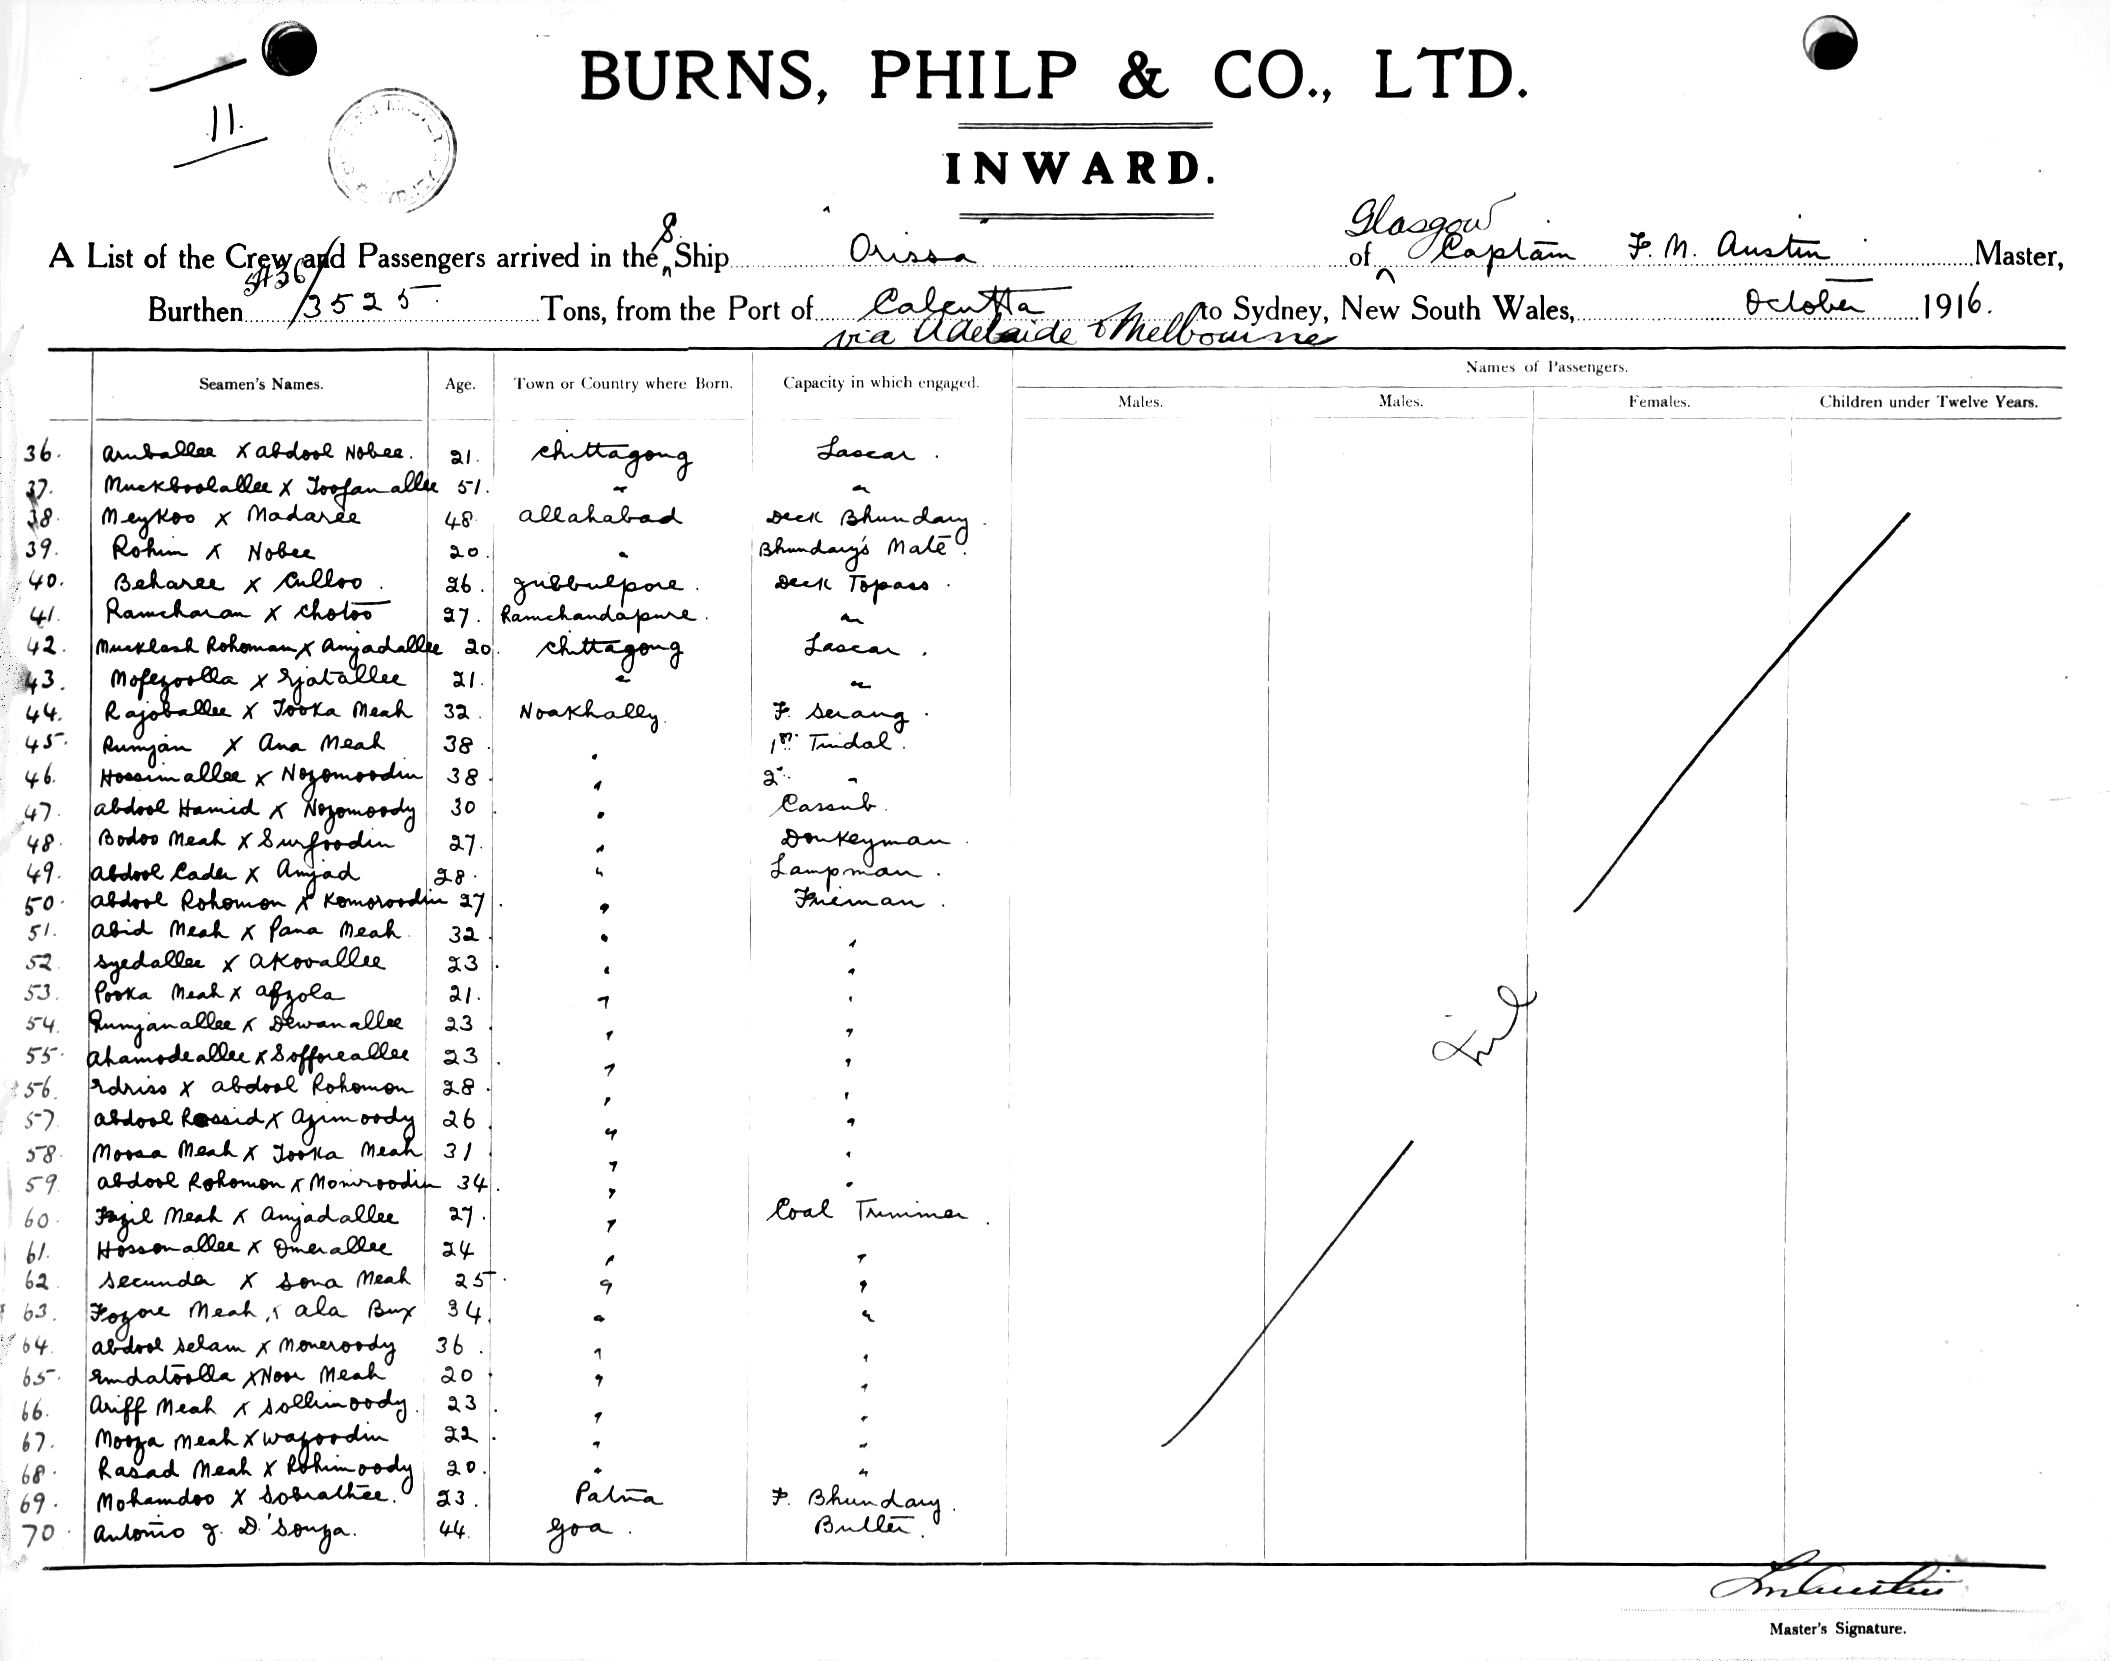 11.
BURNS, PHILP & CO., LTD.
INWARD.
Glasgow
A List of the Crew and Passengers arrived in the S Ship Orissa of Captain F. M. Austin Master,
5436/
Burthen 3525 Tons, from the Port of Calcutta to Sydney, New South Wales, October 1916.
via Adelaide & Melbourne
Names of Passengers.
Seamen's Names. Age. Town or Country where Born. Capacity in which engaged.
Males. Males. Females. Children under Twelve Years.
36. Aruballee x Abdool Nobee. 21. Chittagong Lascar.
37. Muckboolallee x Toofanallee 51. " "
38. Meykoo x Madaree 48. Allahabad Deck Bhundary.
39. Rohim x Nobee 20. " Bhundary's Mate.
40. Beharee x Culloo. 26. Jubbulpore. Deck Topass.
41. Ramcharan x Chotoo 27. Ramchandapure. "
42. Mucklesh Rohoman x Amjadallee 20. Chittagong Lascar.
43. Mofezoolla x Ejatallee 21. " "
44. Rajoballee x Tooka Meah 32. Noakhally. F. Serang.
45. Rumjan x Ana Meah 38. " 1st Tindal.
46. Hossimallee x Nozomoodin 38. " 2" "
47. Abdool Hamid x Nozomoody 30. " Cassub.
48. Bodoo Meah x Surfoodin 27. " Donkeyman.
49. Abdool Cader x Amjad 28. " Lampman.
50. Abdool Rohomon x Komoroodin 27. " Fireman.
51. Abid Meah x Pana Meah. 32. " "
52. Syedallee x Akooallee 23. " "
53. Pooka Meah x Afzola 21. " "
54. Rumjanallee x Dewanallee 23. " "
55. Ahamodeallee x Sofforeallee 23. " "
56. Edriss x Abdool Rohomon 28. " "
57. Abdool Rossid x Azimoody 26. " "
58. Moosa Meah x Tooka Meah 31 " "
59. Abdool Rohomon x Moniroodin 34. " "
60. Fazil Meah x Amjadallee 27. " Coal Trimmer.
61. Hossonallee x Omerallee 24 " "
62. Secunder x Sona Meah 25. " "
63. Fozore Meah x Ala Bux 34. " "
64. Abdool Selam x Moneroody 36. " "
65. Emdatoolla x Noor Meah 20. " "
66. Ariff Meah x Sollimoody. 23. " "
67. Mooza Meah x Wazoodin 22. " "
68. Rasad Meah x Rohimoody 20. " "
69. Mohamdoo x Sobrathee. 23. Patna F. Bhundary.
70. Antonio J. D'Souza. 44. Goa. Butler.
Nil
F M Austin
Master's Signature.